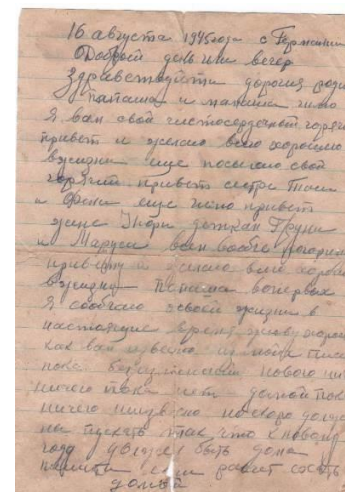 16 августа 1945 года с Германии
Добрый день или вечер
Здравствуйти дорогия роди
папаша и мамаша шлю
Я вам свой чистосердечный горячи
привет и желаю вам хорошо
в жизни еще посылаю свой
горячий привет сестре Тоси
и Фени еще шлю привет
жене Нюри деткам Груни
и Маруси всем вообще по горяч
привету и желаю вам хоро
в жизни папаша вопервых
Я сообчаю своей жизни в
настоящие время живу хоро
как вам извесно из моих писе
пока без изменений нового ни
ничего пока нет домой пок
ничего низвесно но скоро должн
ны пускать так что к новому
году должен быть дома
пишити если
домой